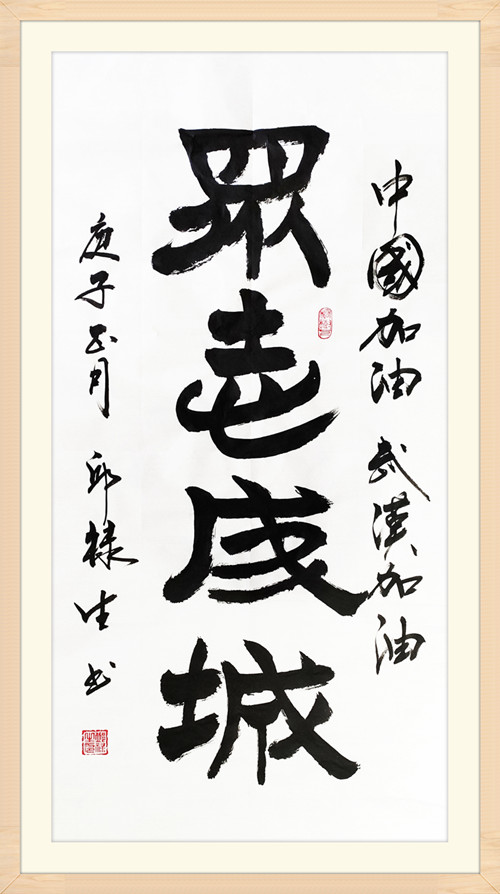 中國加油 武漢加油
眾志成城
庚子正月 邱生书